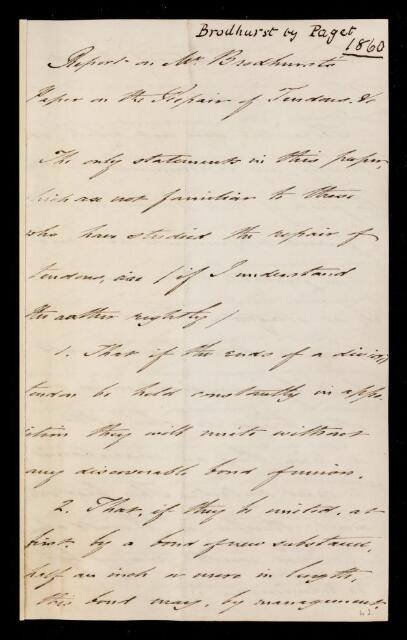 Brodhurst by Paget
1860
Report on Mr Brodhurst's
Paper on the Repair of Tendons &c
The only statements in this paper,
which are not familiar to those
who have studied the repair of
tendons, are (if I understand
the author rightly)
1. That if the ends of a divided
tendon be held constantly in appo-
sition they will unite without
any discoverable bond of union.
2. That, if they be united, at
first, by a bond of new substance,
half an inch or more in length,
this bond may, by management